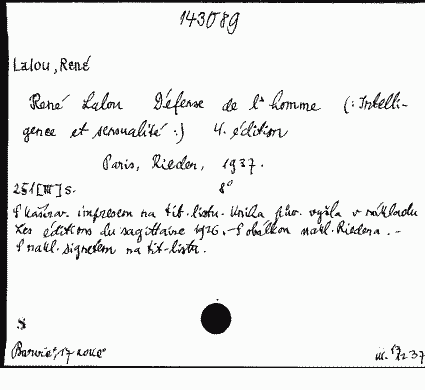 143089
Lalou, René
René Lalou Défense de l'homme (: Intelli-
gence et sensualité :) 4. édition
Paris, Rieder, 1937.
251 [III] s. 8°
S kašírov. impresem na tit. listu. Kniha pův. vyšla v nákladu
Les éditions du sagittaire 1926. - S obálkou nakl. Riedera. -
S nakl. signetem na tit. listu.
S
37